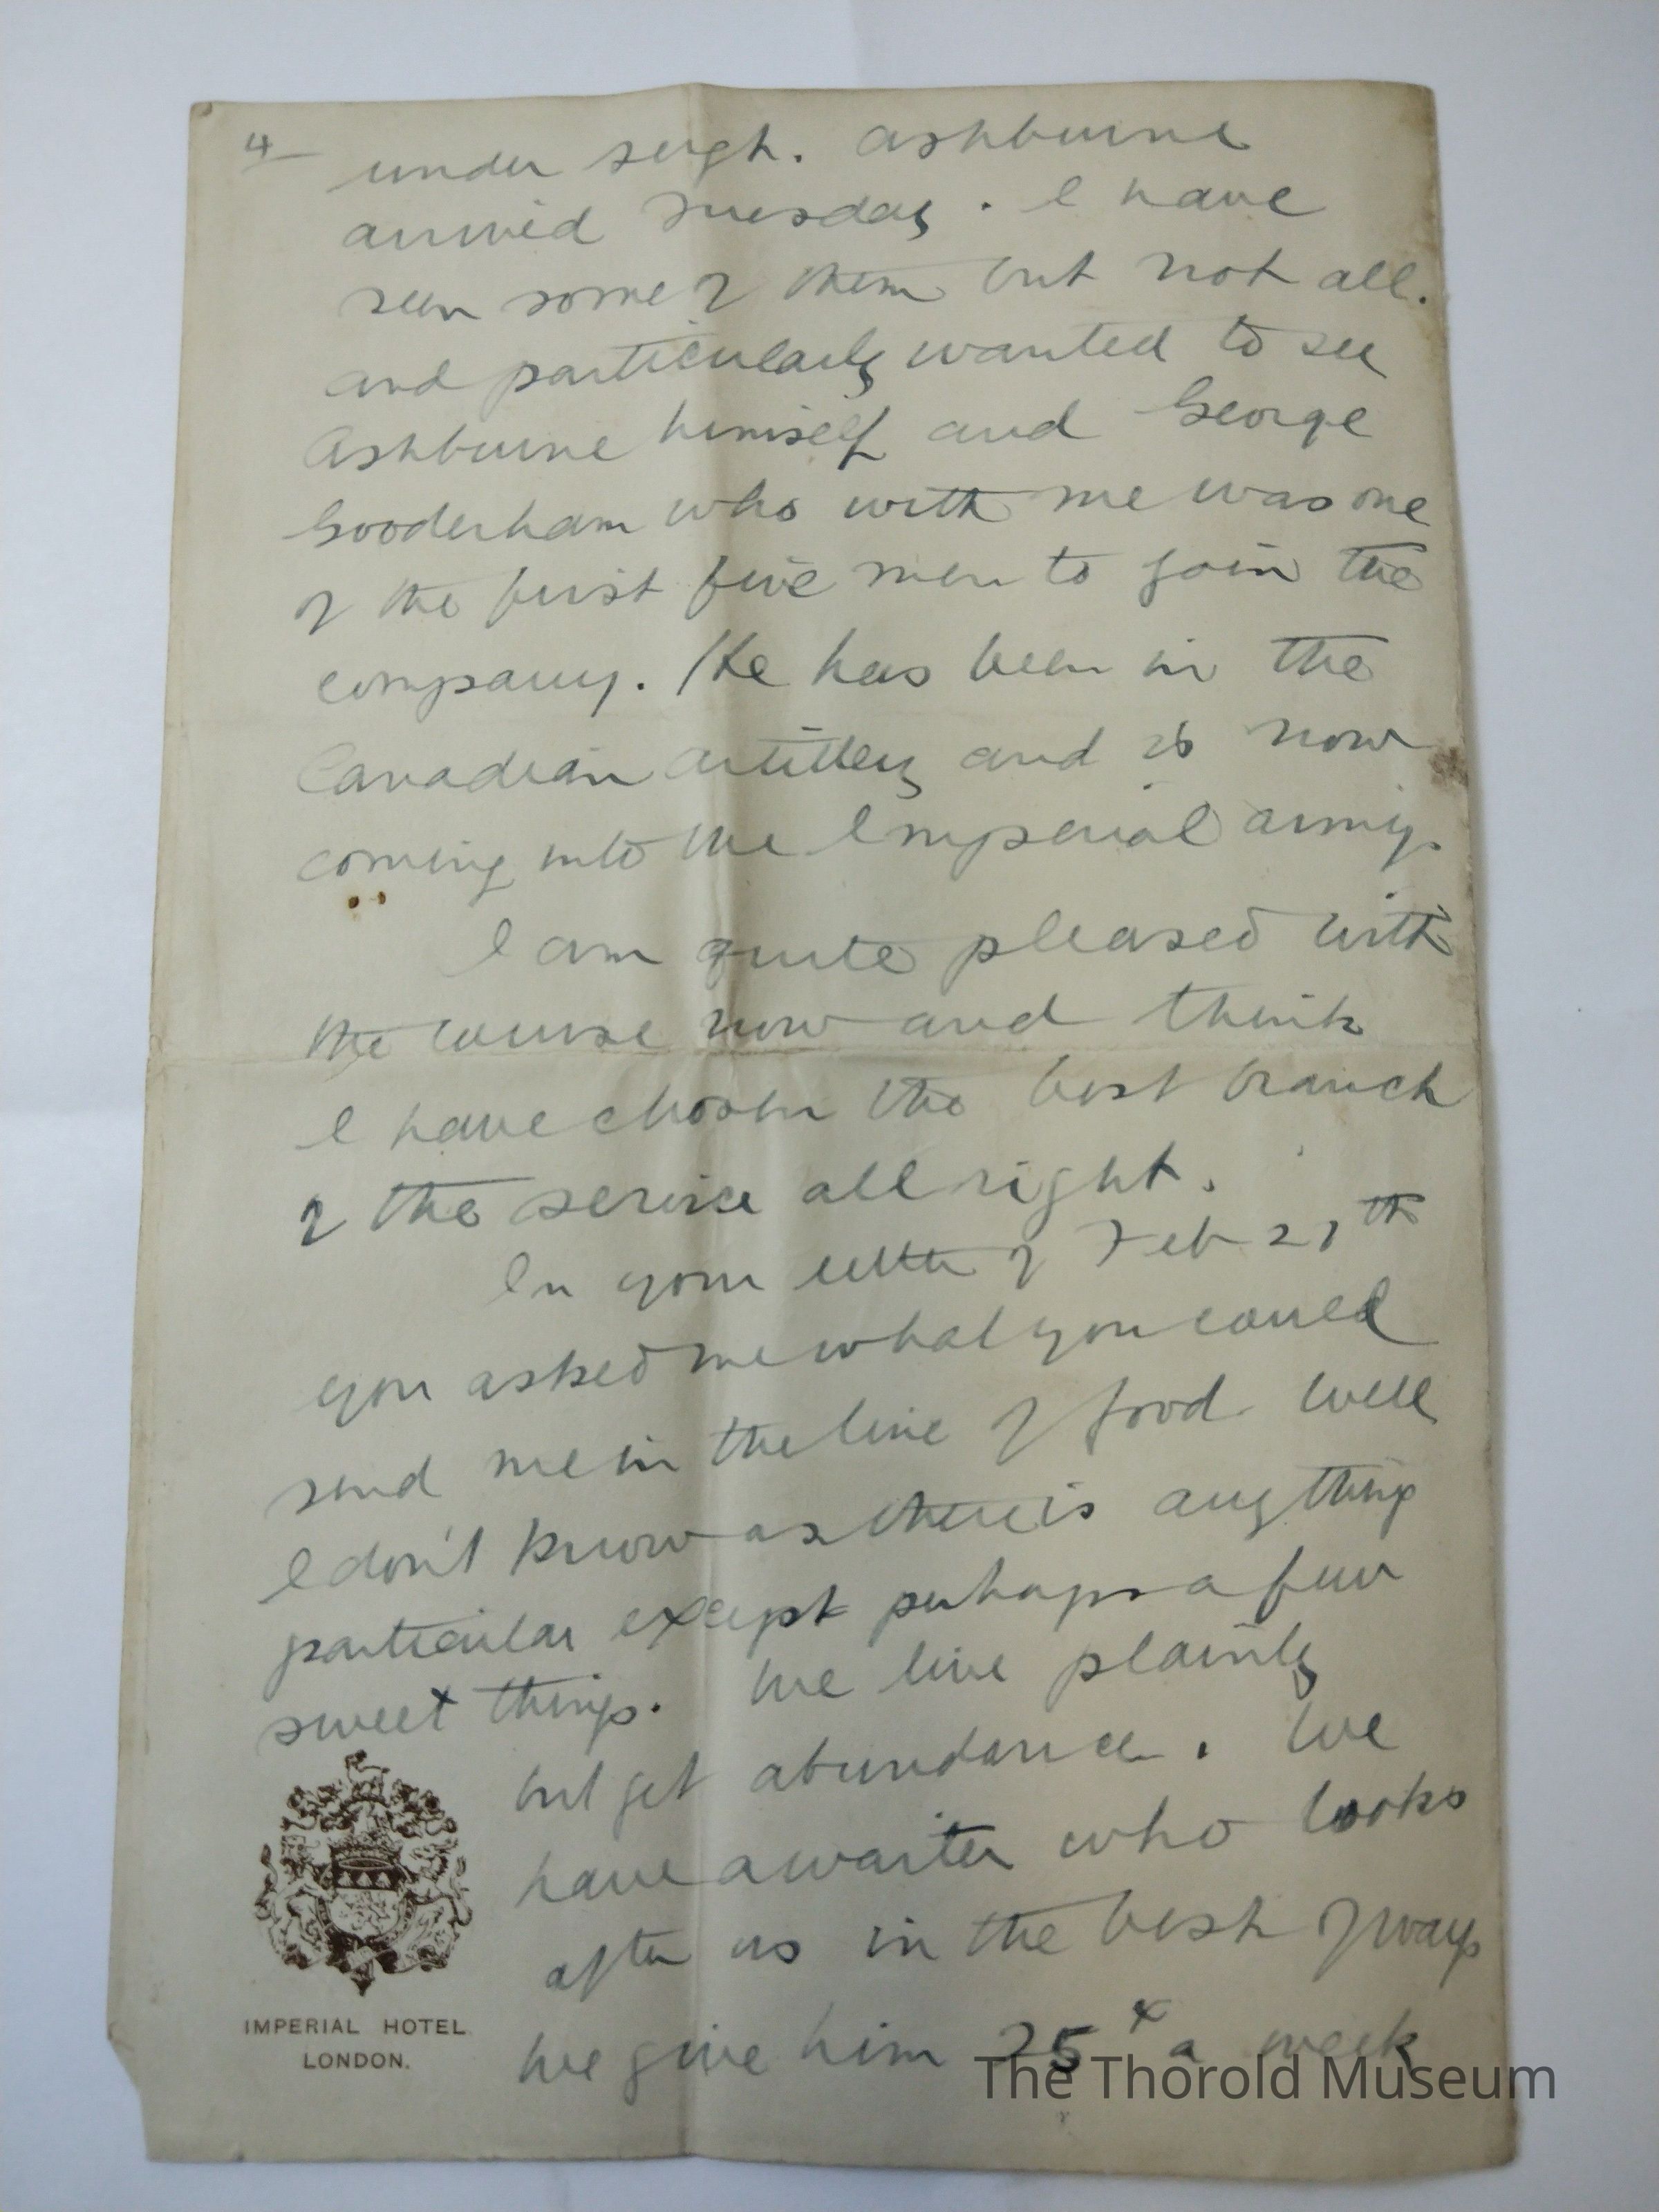 4
under sergt. Ashburne
arrived Tuesday. I have
seen some of them but not all.
and particularly wanted to see
Ashburne himself and George
Gooderham who with me was one
of the first five men to join the
company. He has been in the
Canadian artillery and is now
coming into the Imperial army.
I am quite pleased with
the course now and think
I have chosen the best branch
of the service all right.
In your letter of Feb 27th
you asked me what you could
send me in the line of food well
I don't know as there is any thing
particular except perhaps a few
sweet things. We live plainly
but get abundance. We
have a waiter who looks
after us in the best of ways
We give him 25 a week
IMPERIAL HOTEL
LONDON.
The Thorold Museum